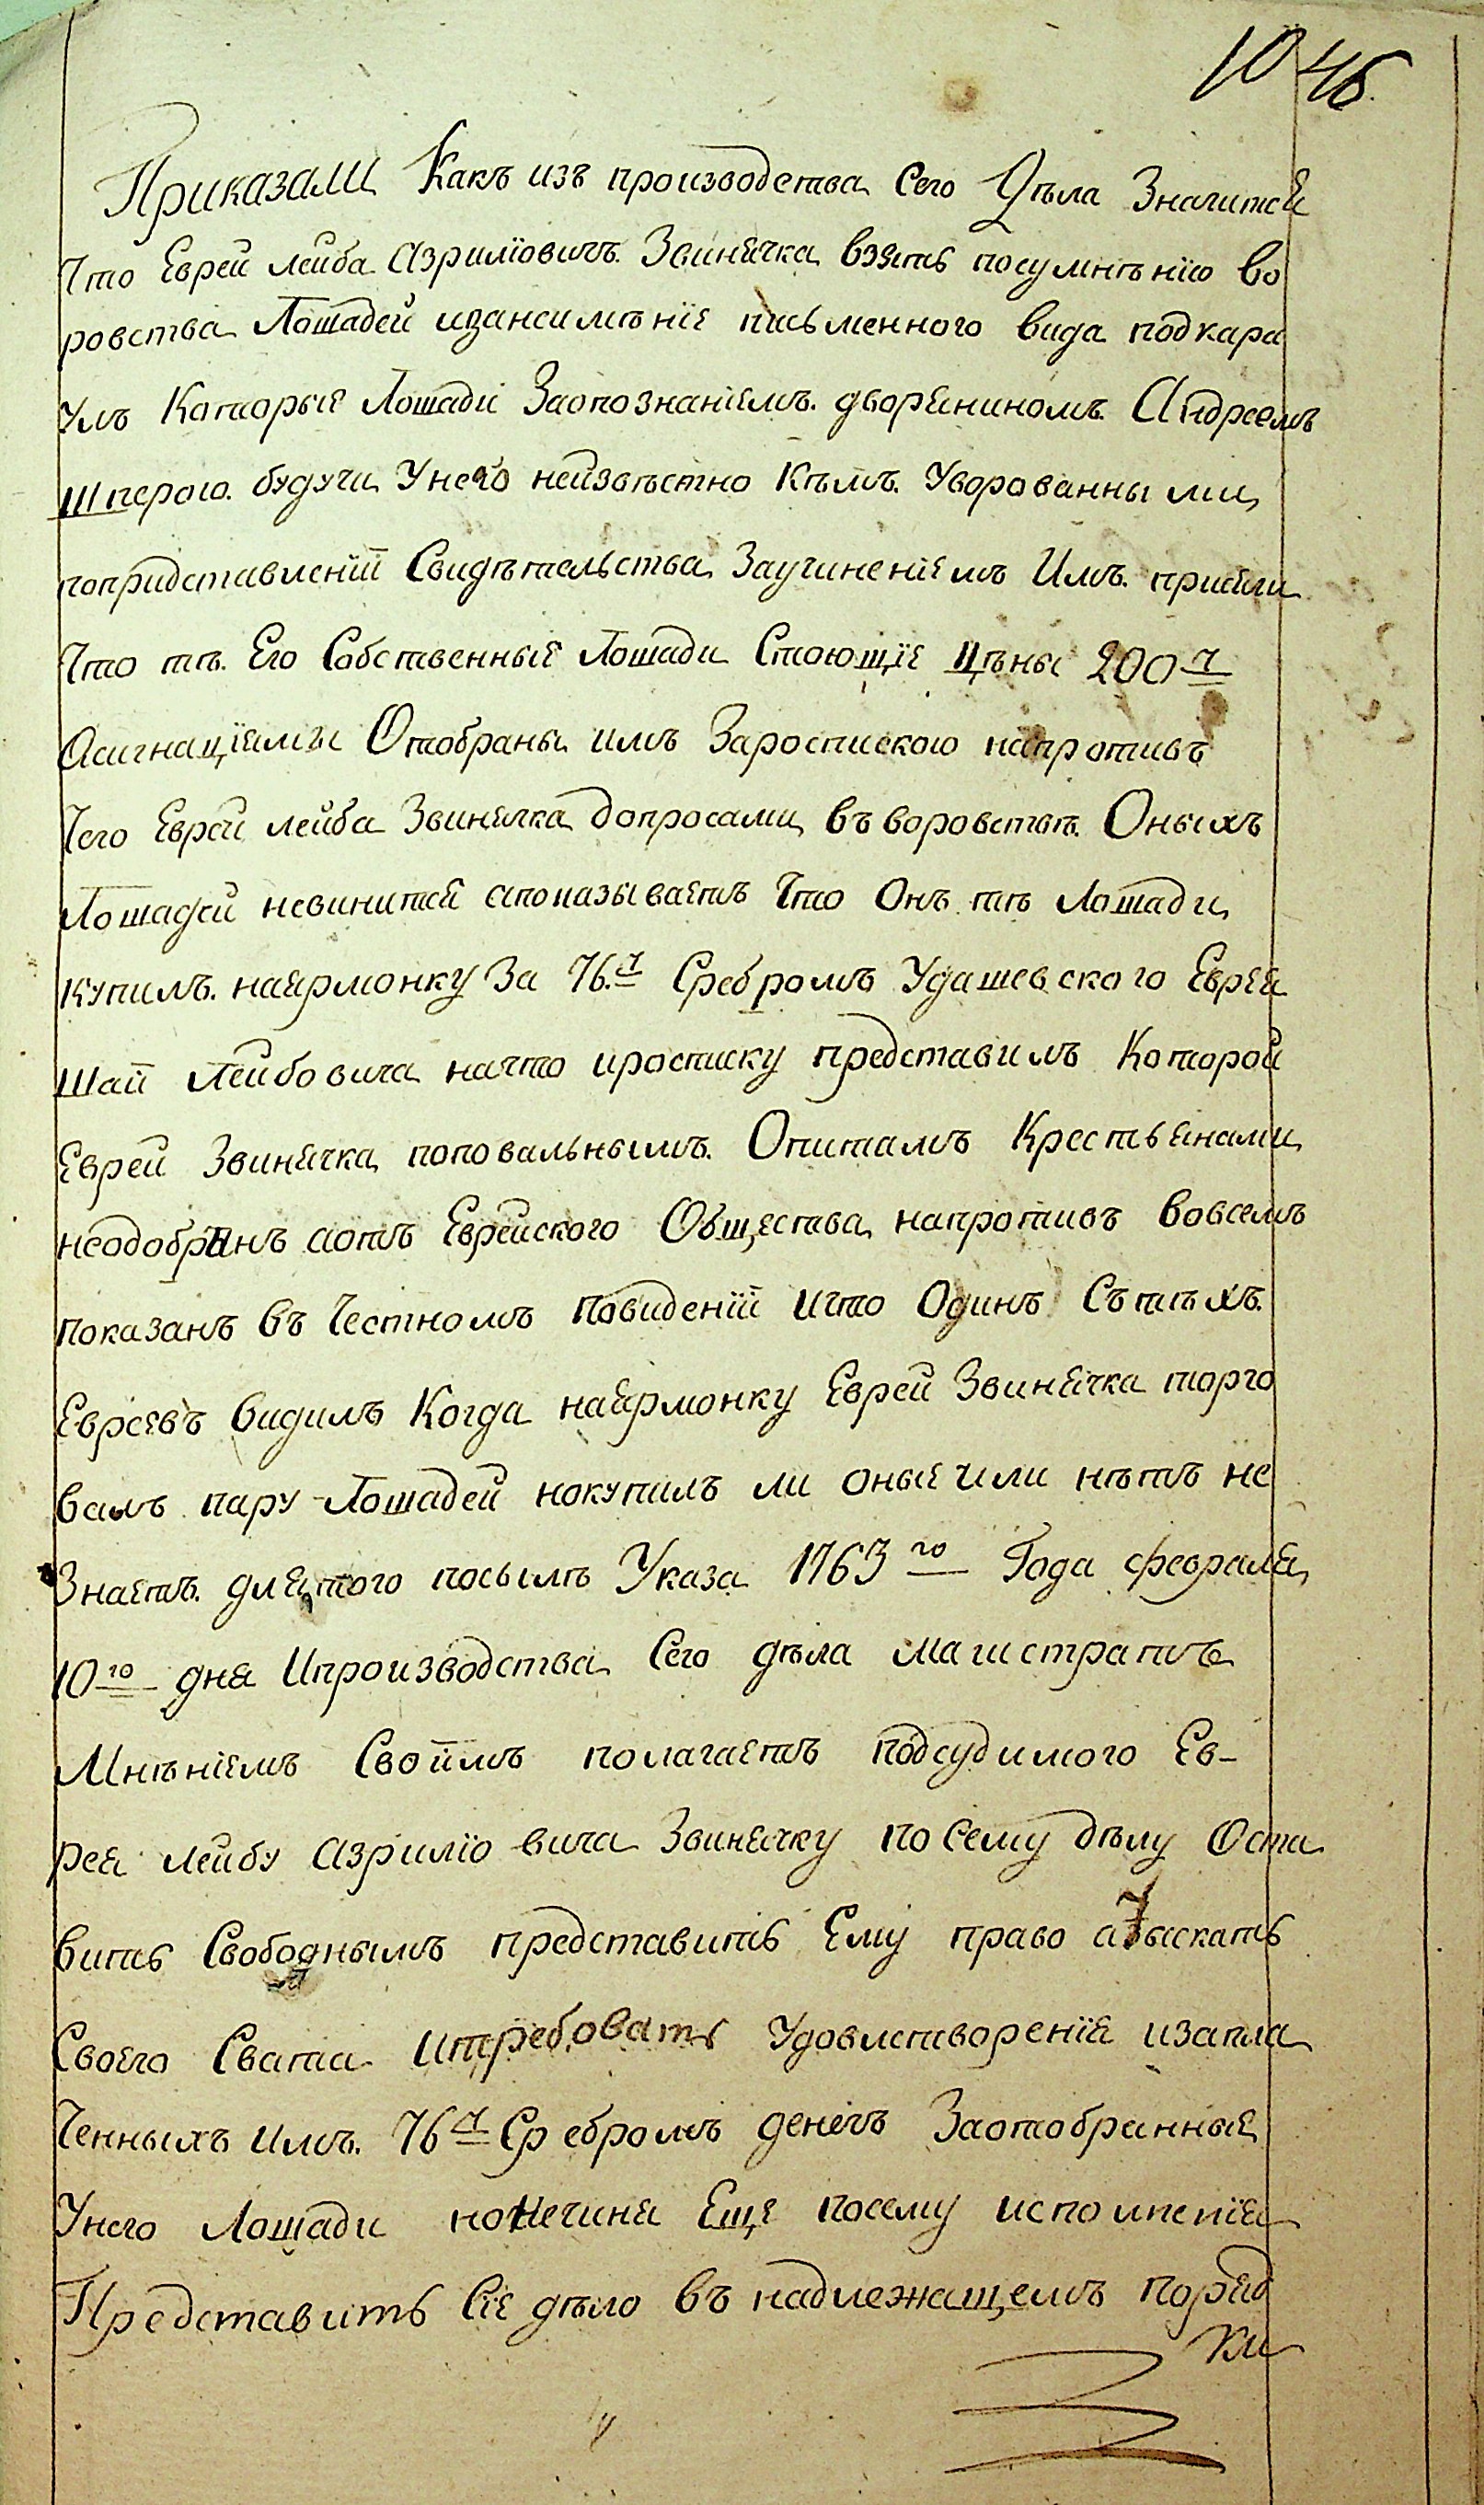 10 46.
Приказали Какъ изъ производства Сего Дѣла Значится
Что Еврей Лейба Азрилїовичъ Звинячка взятъ посумнѣнїю во
ровства Лошадей изанеимѣнїе письменного вида подкара
улъ Которые Лошади Заопознанїемъ дворяниномъ Андреемъ
Шперою будучи Унего неизвѣстно Кѣмъ Уворованными
попридставленїи Свидѣтельства Заучиненїемъ Имъ присяги
Что тѣ Его Собственные Лошади Стоющїе Цѣны 200 р
Асигнацїями Отобраны имъ Зароспискою напротивъ
Чего Еврей Лейба Звинячка допросами въ воровствѣ Оныхъ
Лошадей невинится апоказываетъ Что Онъ тѣ Лошади
купилъ наярмонку За 76 р Сребромъ Удашевского Еврея
Шаи Лейбовича начто иросписку представилъ Которой
Еврей Звинячка поповальнымъ Опитамъ Крестьянами
неодобрѣнъ аотъ Еврейского Общества напротивъ вовсемъ
показанъ въ Честномъ повиденїи ичто Одинъ Сътѣхъ
Евреевъ видилъ Когда наярмонку Еврей Звинячка торго
валъ пару Лошадей нокупилъ ли оные или нѣтъ не
Знаетъ длятого посилѣ Указа 1763 го Года февраля
10 го дня Ипроизводства Сего дѣла Магистратъ
Мнѣнїемъ Своимъ полагаетъ подсудимого Ев-
рея Лейбу Азрилїовича Звинячку по Сему дѣлу Оста
вить Свободнымъ представить Ему право атыскать
Своего Свата Итребовать Удовлетворенїя изапла
Ченныхъ имъ 76 р Сребромъ денегъ Заотобранные
Унего Лошади но нечиня Еще посему исполненїя
Представить Сїе дѣло въ надлежащемъ поряд
ки